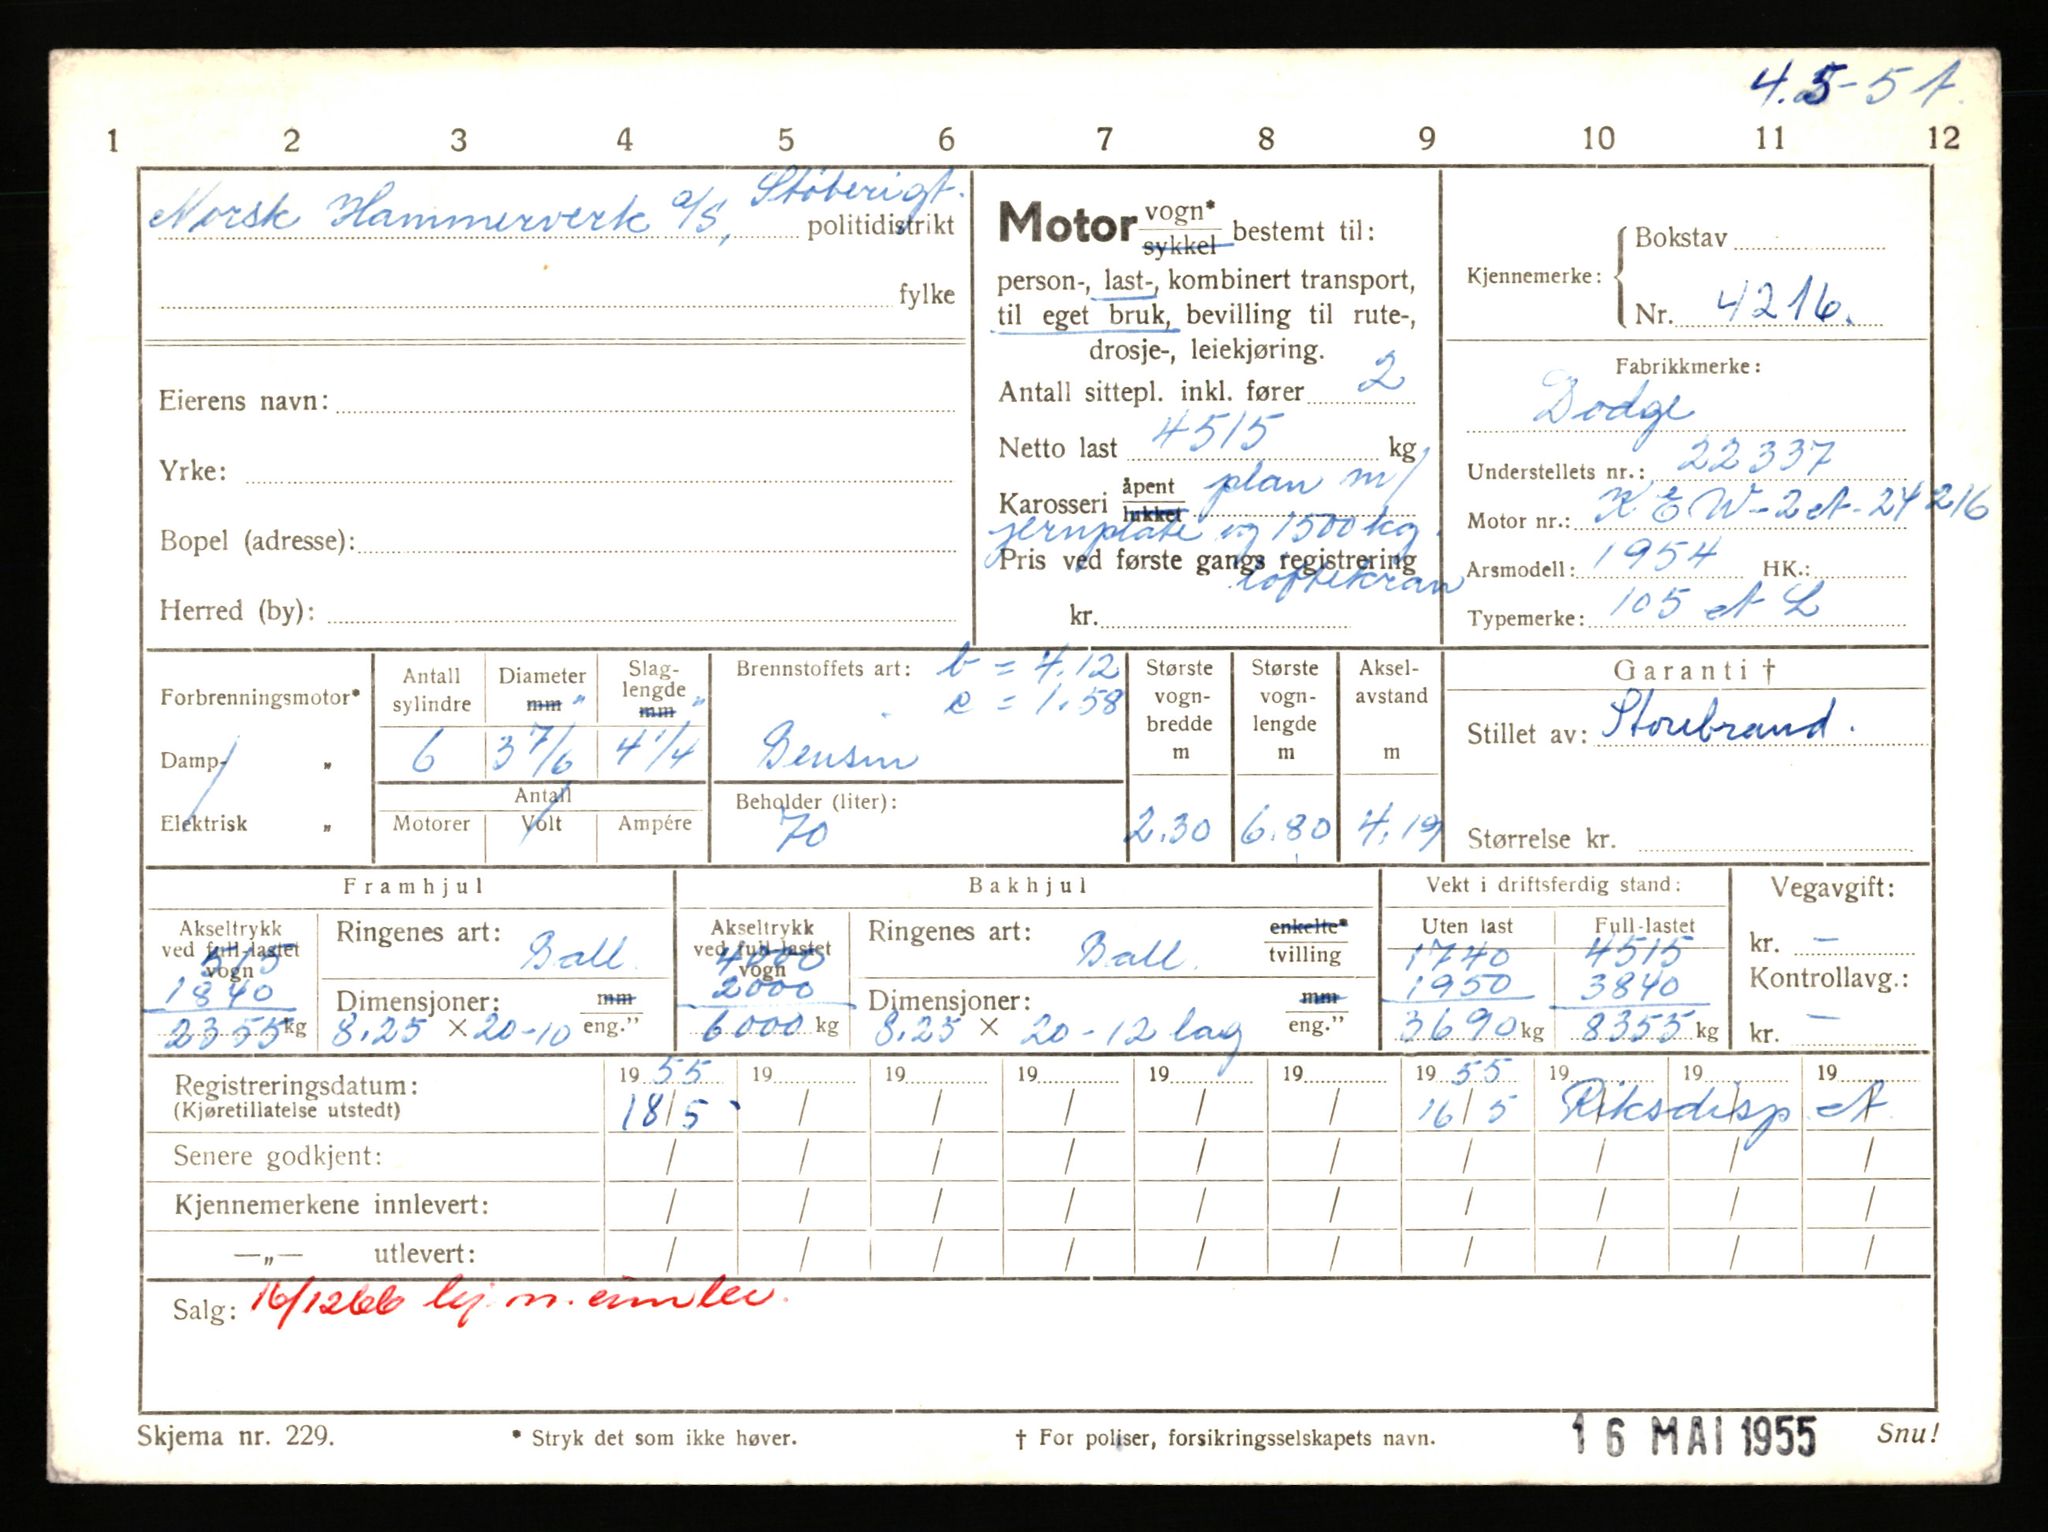 4.5-5 A.
1 2 3 4 5 6 7 8 9 10 11 12
Norsk Hammerverk a/s, Støberigt.
politidistrikt
fylke
Eierens navn:
Yrke:
Bopel (adresse):
Herred (by):
Motor vogn* sykkel bestemt til:
person-, last-, kombinert transport,
til eget bruk, bevilling til rute-,
drosje-, leiekjøring.
Antall sittepl. inkl. fører 2
Netto last 4515 kg
Karosseri åpent lukket plan m/
jernplate og 1500 kg.
Pris ved første gangs registrering
løftekran
kr.
Kjennemerke: Bokstav
Nr. 4216.
Fabrikkmerke:
Dodge
Understellets nr.: 22337
Motor nr.: KEW-2A-24216
Arsmodell: 1954 HK.:
Typemerke: 105 A L
Forbrenningsmotor*
Damp- „
Elektrisk „
Antall sylindre
6
Diameter mm "
3 7/6
Slag-
lengde
mm "
4 1/4
Antall
Motorer Volt Ampére
Brennstoffets art: b = 4.12
c = 1.58
Bensin
Beholder (liter):
70
Største
vogn-
bredde
m
2.30
Største
vogn-
lengde
m
6.80
Aksel-
avstand
m
4.19
Garanti †
Stillet av: Storebrand.
Størrelse kr.
Framhjul
Akseltrykk
ved full-lastet
vogn
515
1840
2355 kg
Ringenes art: Ball.
Dimensjoner: mm
8.25 × 20-10 eng."
Bakhjul
Akseltrykk
ved full-lastet
vogn
4000
2000
6000 kg
Ringenes art: Ball. enkelte* tvilling
Dimensjoner: mm
8.25 × 20-12 lag eng."
Vekt i driftsferdig stand:
Uten last Full-lastet
1740 4515
1950 3840
3690 kg 8355 kg
Vegavgift:
kr. —
Kontrollavg.:
kr. —
Registreringsdatum: 19 55 19 19 19 19 19 19 55 19 19 19
(Kjøretillatelse utstedt) 18/5 / / / / / 16/5 Riksdisp. A
Senere godkjent: / / / / / / / / / /
Kjennemerkene innlevert: / / / / / / / / / /
—„— utlevert: / / / / / / / / / /
Salg: 16/12 66 kj. m. innlev.
Skjema nr. 229. * Stryk det som ikke høver. † For poliser, forsikringsselskapets navn. 16 MAI 1955 Snu!